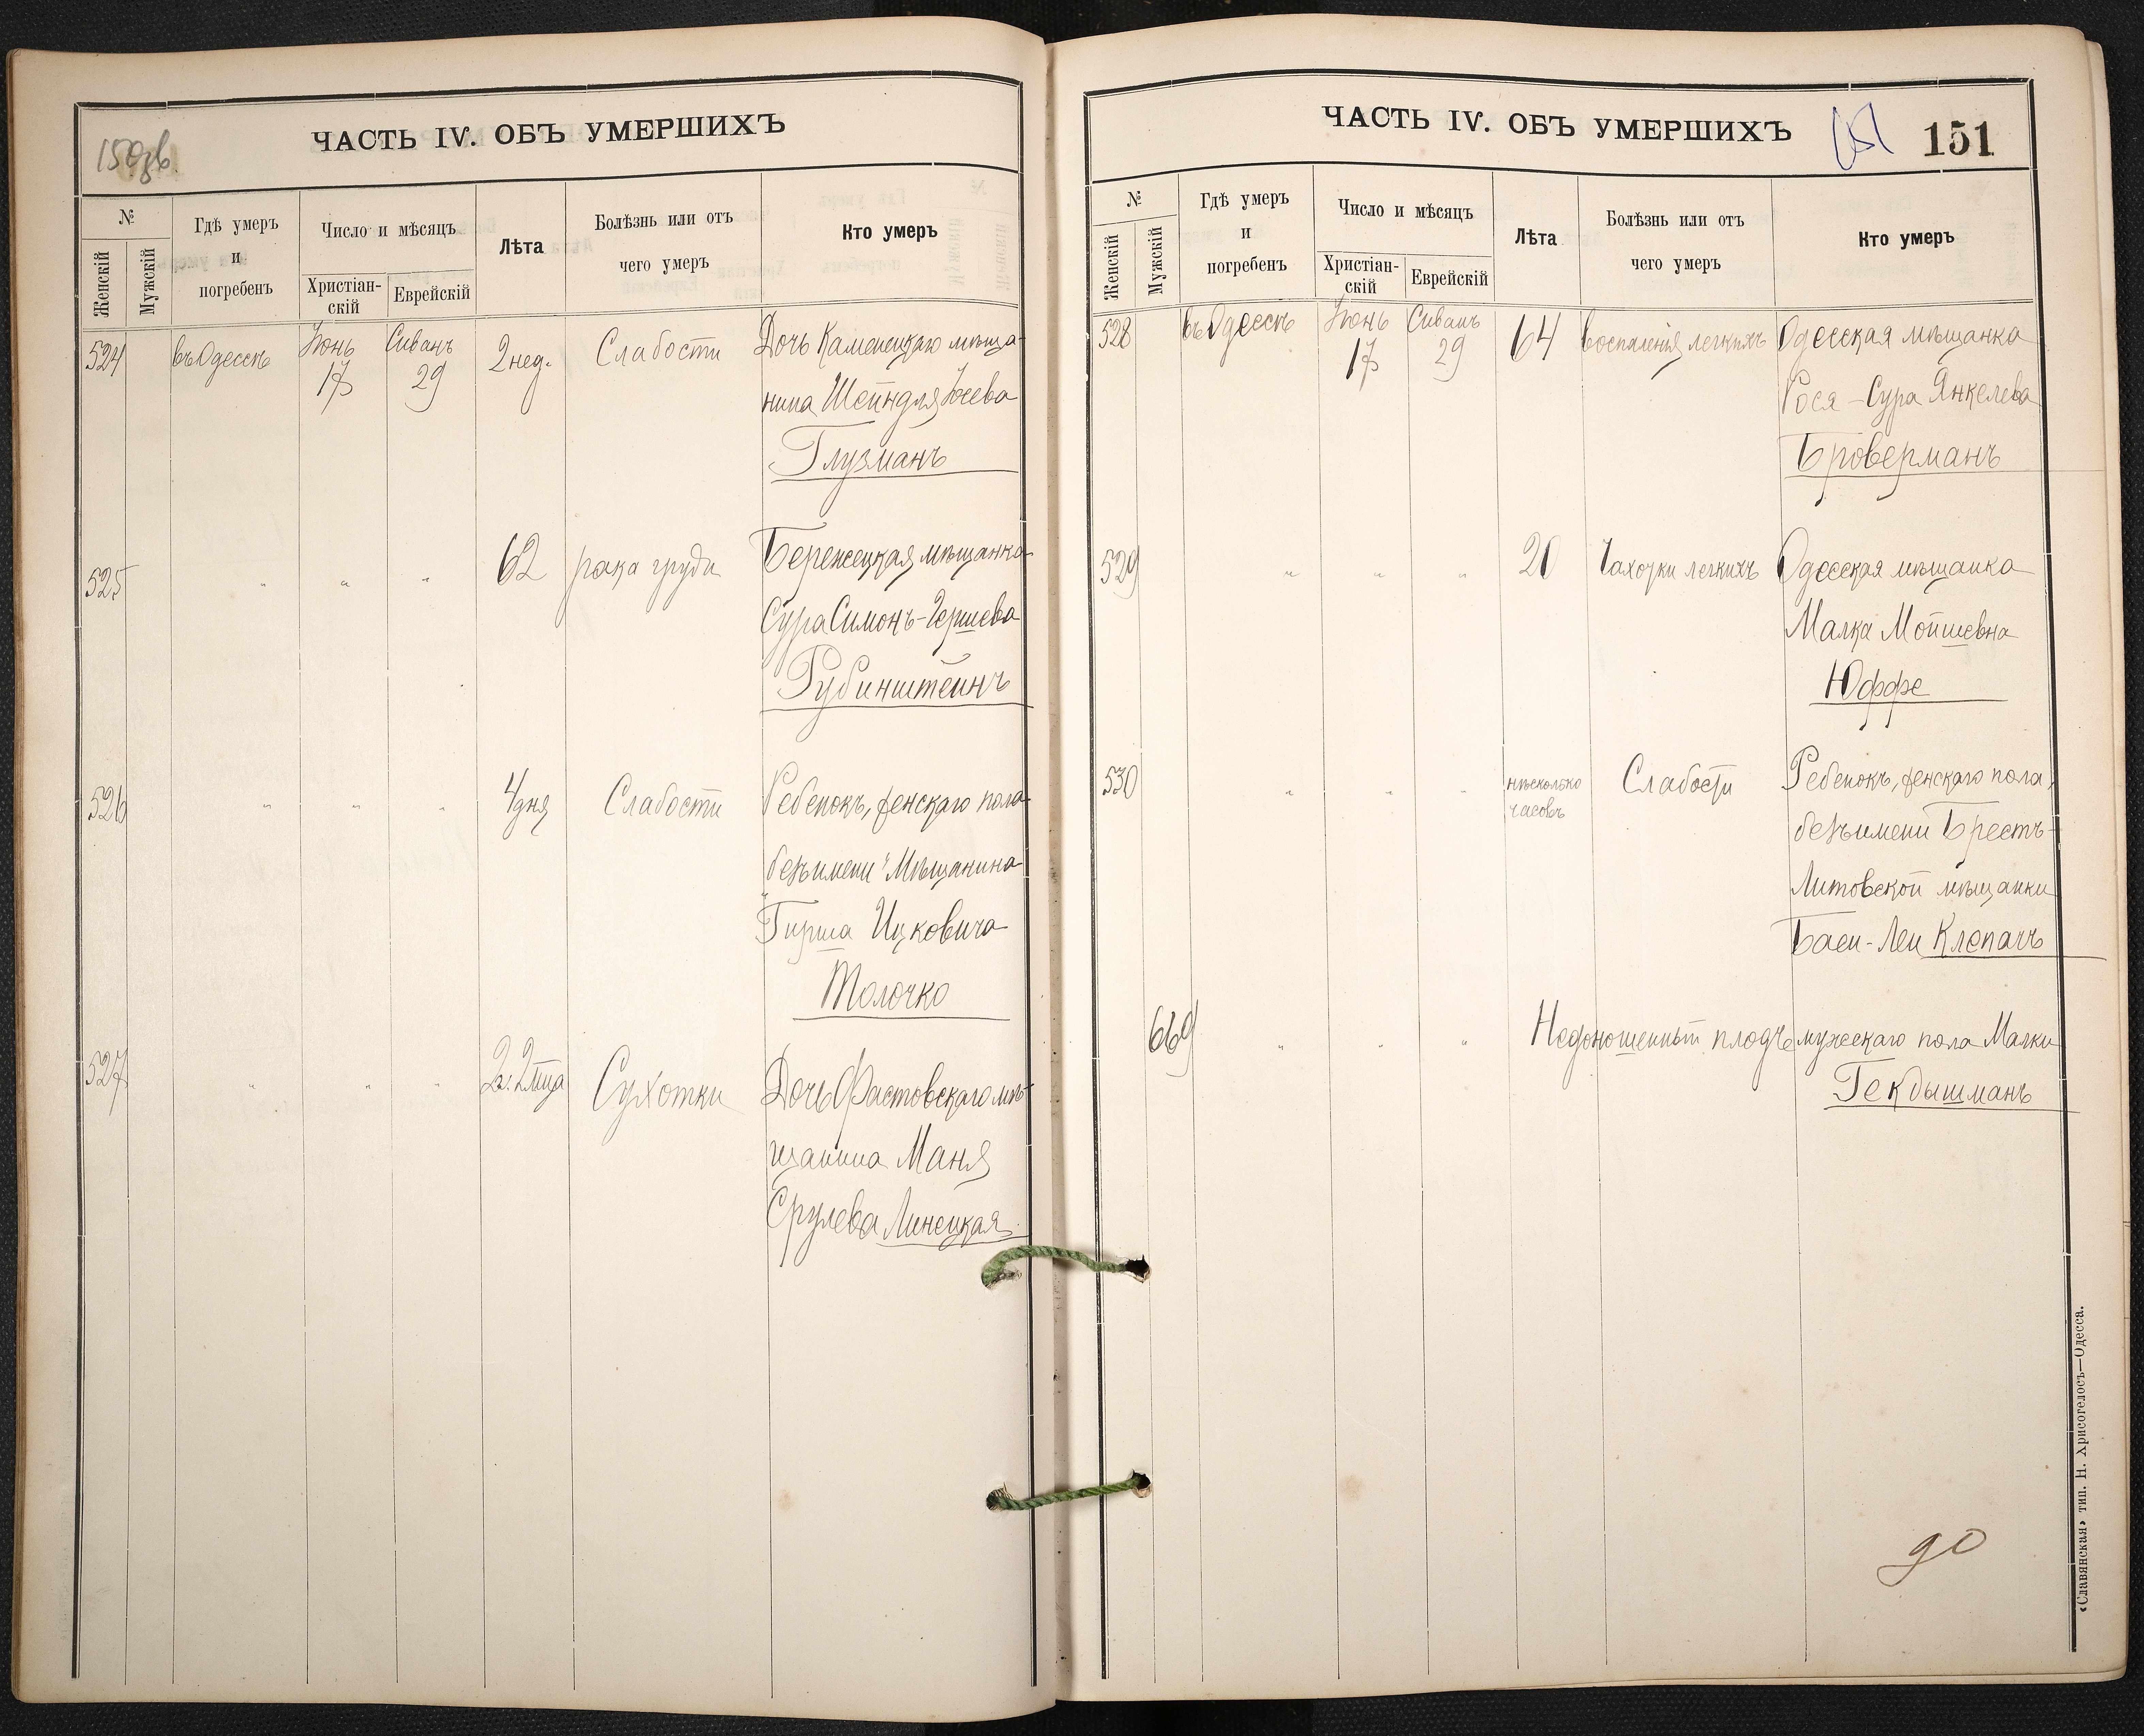 150 зв.
ЧАСТЬ IV. ОБЪ УМЕРШИХЪ
№
Женскій
Мужскій
Гдѣ умеръ
и
погребенъ
Число и мѣсяцъ
Христіан-
скій
Еврейскій
Лѣта
Болѣзнь или отъ
чего умеръ
Кто умеръ
524 въ Одессѣ Іюнь 17 Сиванъ 29 2 нед. Слабости Дочь Каменецкаго мѣща-
нина Шейндля Іосева
Глузманъ
525 " " " 62 рака груди Бережецкая мѣщанка
Сура Симонъ-Гершева
Рубинштейнъ
526 " " " 4 дня Слабости Ребенокъ, женскаго пола
безъ имени "Мѣщанина
Гирша Ицковича
Толочко
527 " " " 2 г. 2 мца Сухотки Дочь Фастовскаго мѣ-
щанина Маня
Срулева Линецкая
ЧАСТЬ IV. ОБЪ УМЕРШИХЪ
151
151
№
Женскій
Мужскій
Гдѣ умеръ
и
погребенъ
Число и мѣсяцъ
Христіан-
скій
Еврейскій
Лѣта
Болѣзнь или отъ
чего умеръ
Кто умеръ
528 въ Одессѣ Іюнь 17 Сиванъ 29 64 воспаленія легкихъ Одесская мѣщанка
Рося-Сура Янкелева
Броверманъ
529 " " " 20 Чахотки легкихъ Одесская мѣщанка
Малка Мойшевна
Юффе
530 " " " нѣсколько часовъ Слабости Ребенокъ, женскаго пола,
безъ имени Брестъ-
Литовской мѣщанки
Баси-Леи Клепачъ
669 " " " Недоношенный плодъ мужескаго пола Малки
Гекдышманъ
«Славянская» тип. Н. Хрисогелосъ—Одесса.